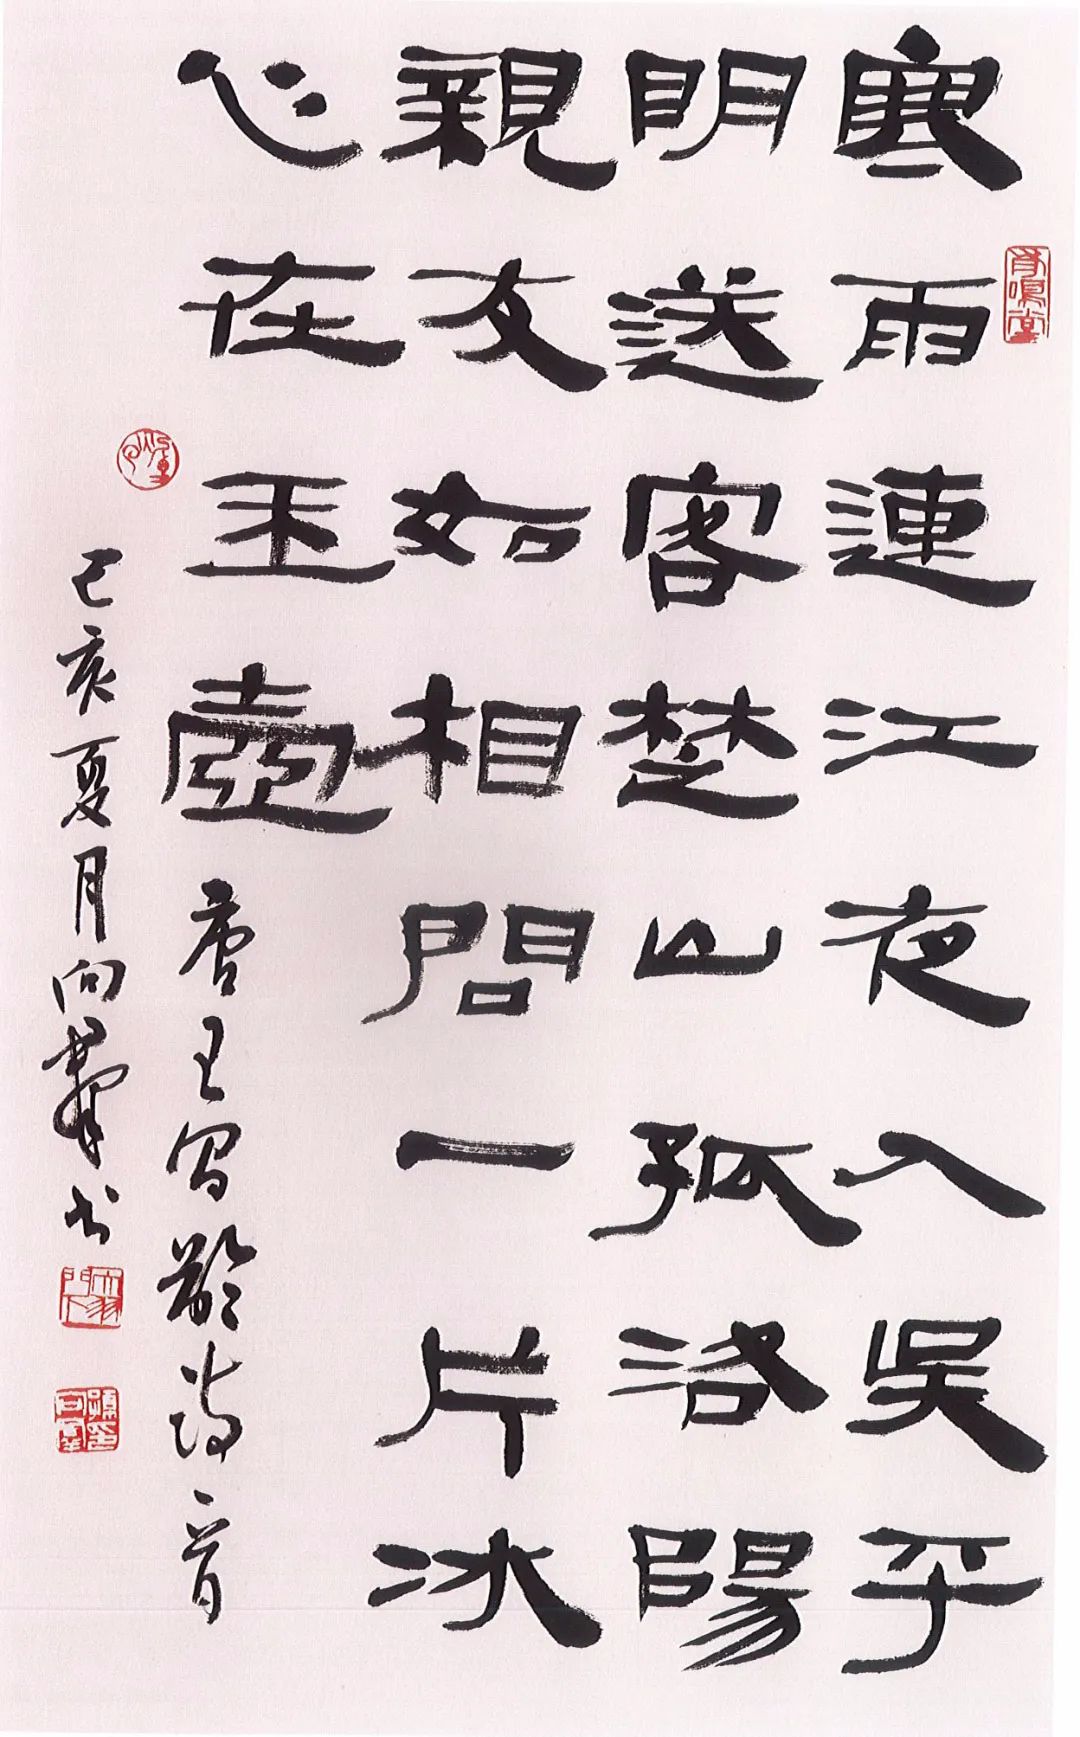 寒雨連江夜入吴平
明送客楚山孤洛陽
親友如相問一片冰
心在玉壺
唐王昌齡詩一首
己亥夏月向群书